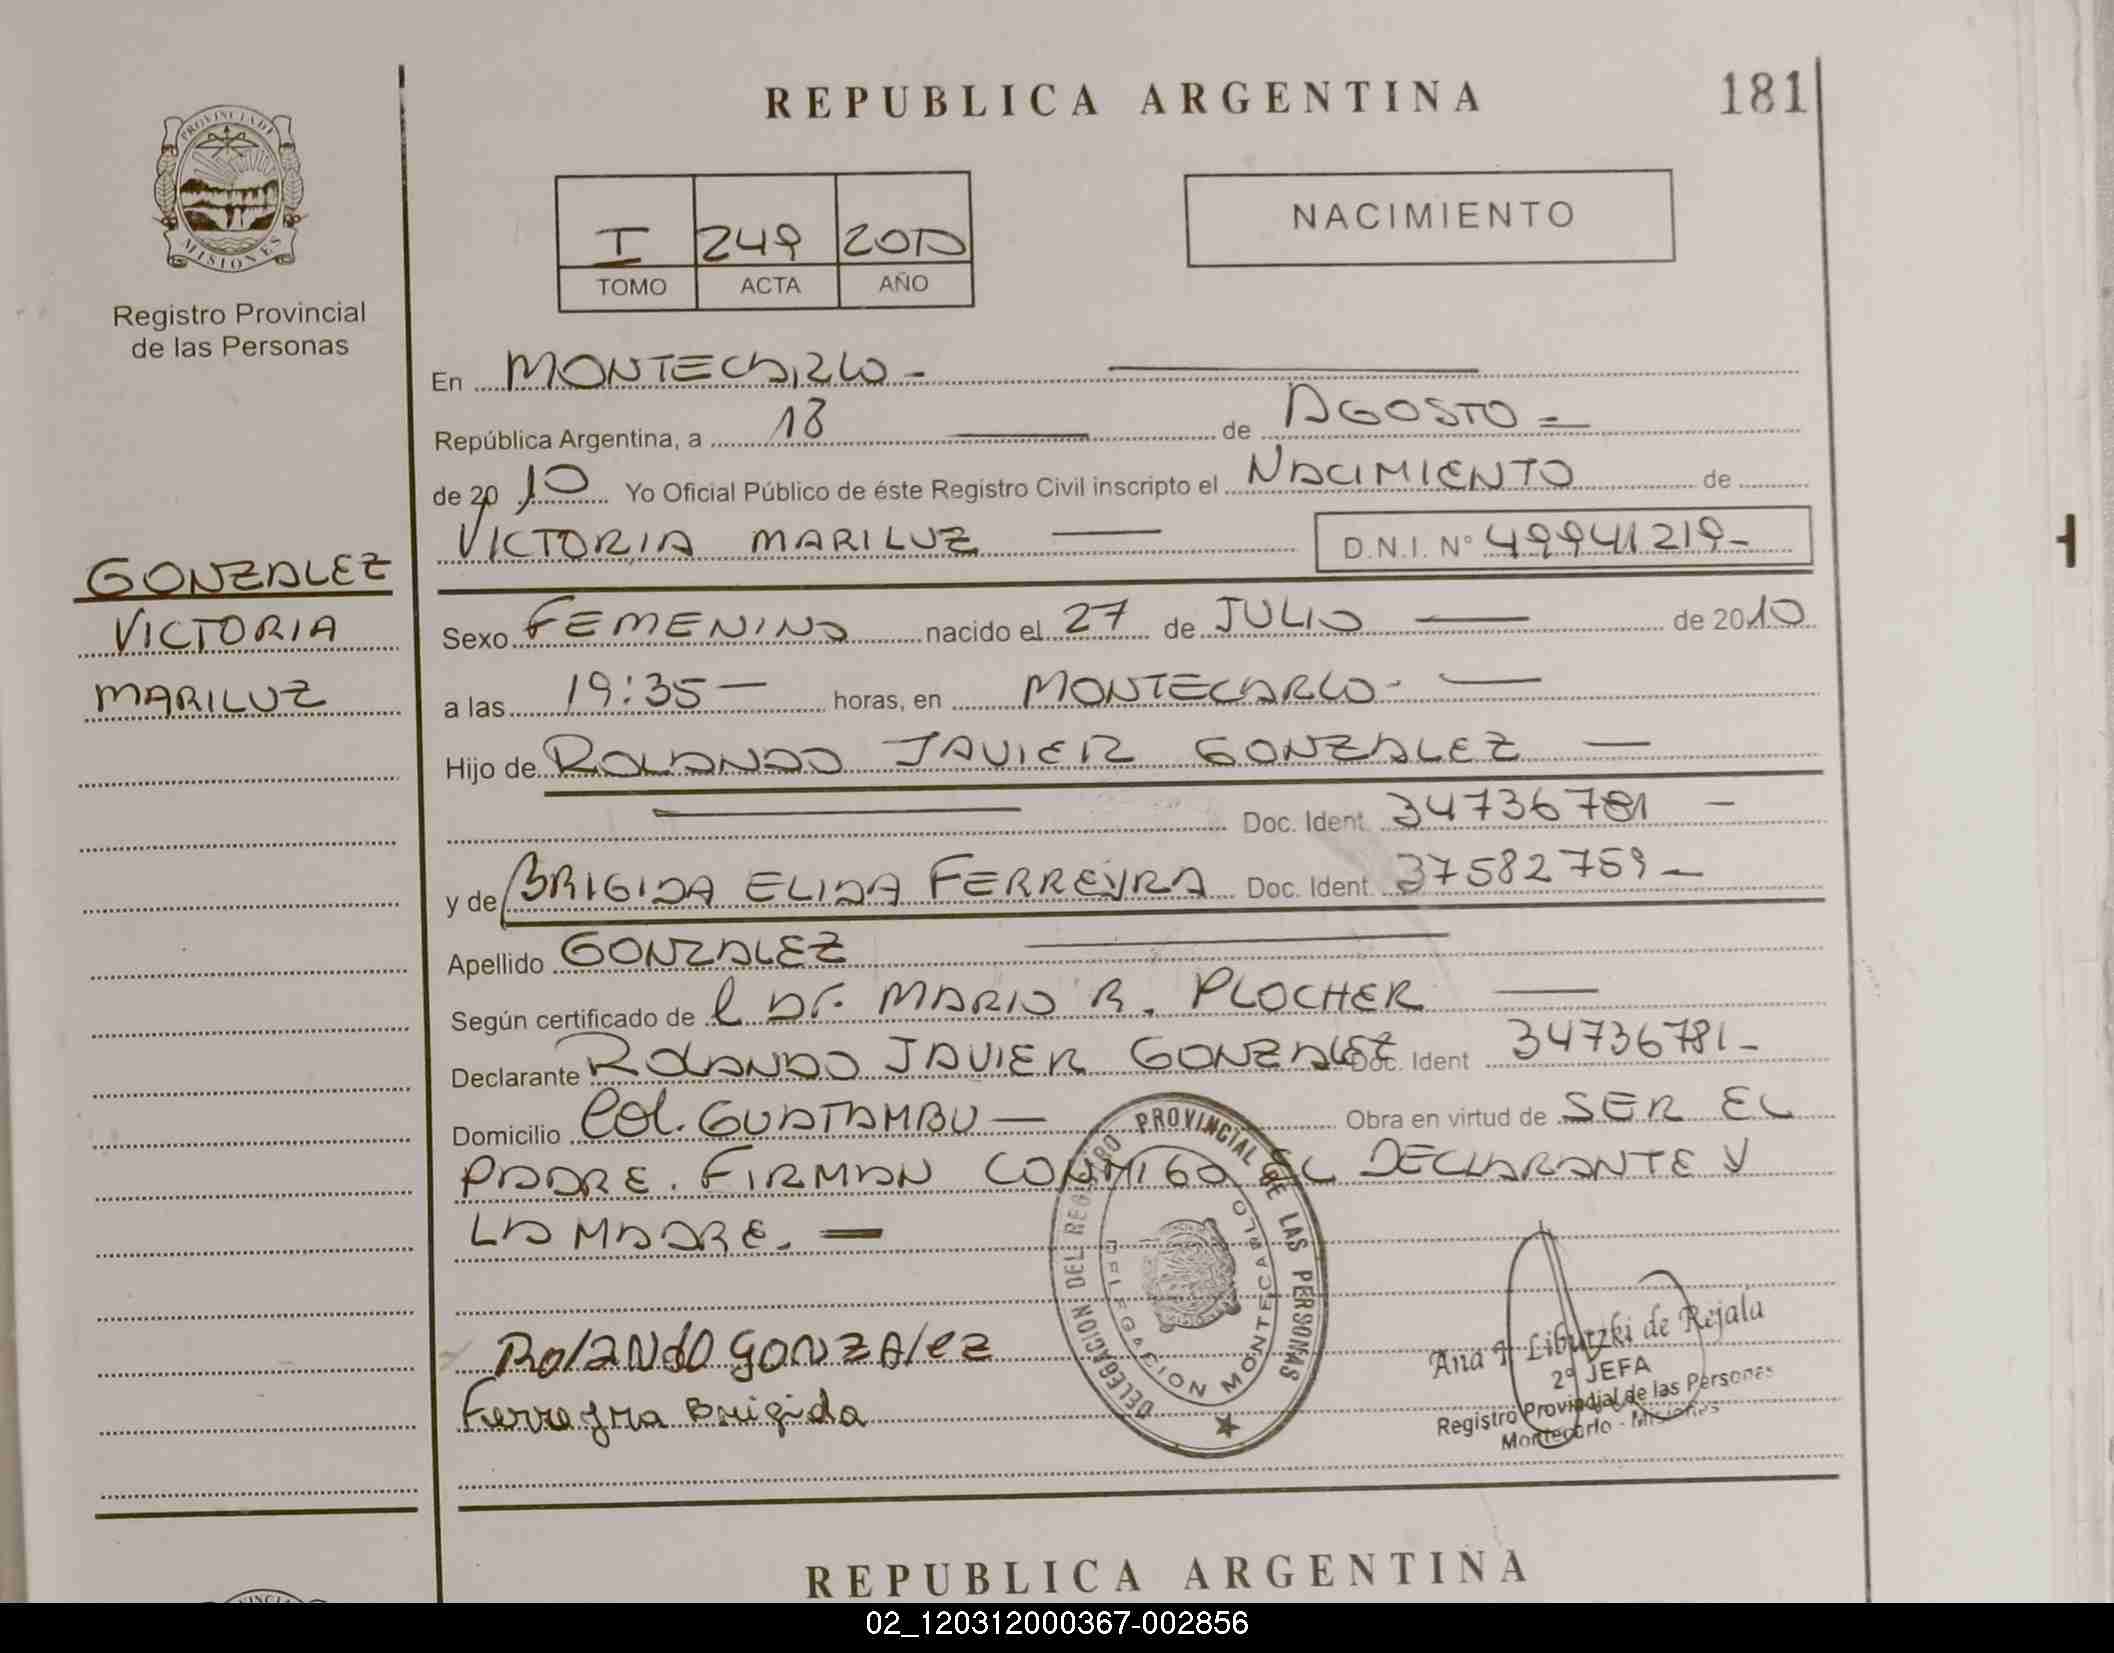 REPUBLICA ARGENTINA
181
PROVINCIA DE
MISIONES
Registro Provincial
de las Personas
I 249 2010
TOMO ACTA AÑO
NACIMIENTO
En MONTECARLO -
República Argentina, a 18 de AGOSTO =
de 2010 Yo Oficial Público de éste Registro Civil inscripto el NACIMIENTO de
VICTORIA MARILUZ D.N.I. N° 49941219-
GONZALEZ
VICTORIA
MARILUZ
Sexo FEMENINO nacido el 27 de JULIO de 2010
a las 19:35 - horas, en MONTECARLO -
Hijo de ROLANDO JAVIER GONZALEZ
Doc. Ident 34736781 -
y de BRIGIDA ELIDA FERREYRA Doc. Ident 37582759 -
Apellido GONZALEZ
Según certificado de l Dr. MARIO R. PLOCHER
Declarante ROLANDO JAVIER GONZALEZ Doc. Ident 34736781 -
Domicilio Col. GUATAMBU - Obra en virtud de SER EL
PADRE. FIRMAN CONMIGO EL DECLARANTE Y
LA MADRE. -
DELEGACION DEL REGISTRO PROVINCIAL DE LAS PERSONAS
DELEGACION MONTECARLO
Rolando gonzalez
Ferreyra Brigida
Ana Libutzki de Rejala
2º JEFA
Registro Provincial de las Personas
Montecarlo - Misiones
REPUBLICA ARGENTINA
02_120312000367-002856